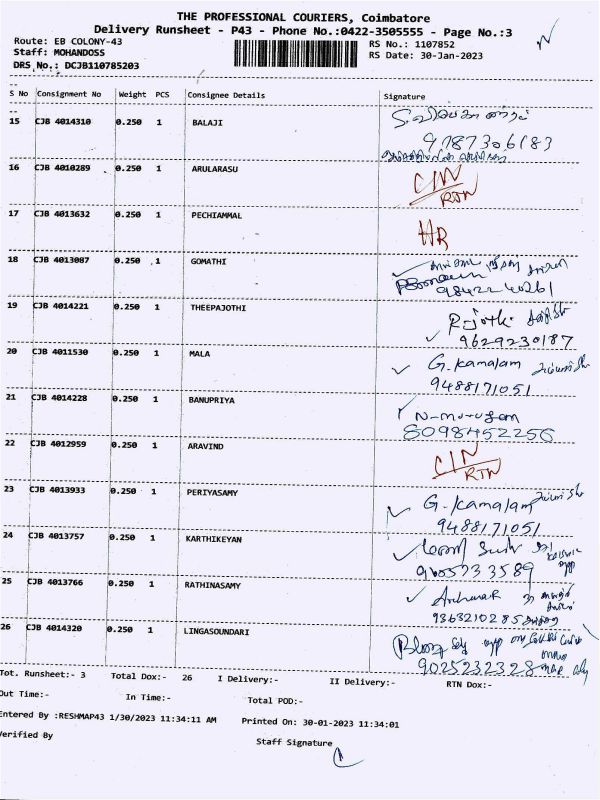 THE PROFESSIONAL COURIERS, Coimbatore
Delivery Runsheet - P43 - Phone No.:0422-3505555 - Page No.:3
Route: EB COLONY-43 RS No.: 1107852
Staff: MOHANDOSS RS Date: 30-Jan-2023
DRS No.: DCJB110785203
S No Consignment No Weight PCS Consignee Details Signature
15 CJB 4014310 0.250 1 BALAJI
9787306183
16 CJB 4010289 0.250 1 ARULARASU C/N
RTN
17 CJB 4013632 0.250 1 PECHIAMMAL HR
18 CJB 4013087 0.250 1 GOMATHI
9842240261
19 CJB 4014221 0.250 1 THEEPAJOTHI R-jothi
9629230187
20 CJB 4011530 0.250 1 MALA G. Kamalam
9488171051
21 CJB 4014228 0.250 1 BANUPRIYA N-murugam
8098452256
22 CJB 4012959 0.250 1 ARAVIND C/N
RTN
23 CJB 4013933 0.250 1 PERIYASAMY G. Kamalam
9488171051
24 CJB 4013757 0.250 1 KARTHIKEYAN
25 CJB 4013766 0.250 1 RATHINASAMY
9363210285
26 CJB 4014320 0.250 1 LINGASOUNDARI
9025232328
Tot. Runsheet:- 3 Total Dox:- 26 I Delivery:- II Delivery:- RTN Dox:-
Out Time:- In Time:- Total POD:-
Entered By :RESHMAP43 1/30/2023 11:34:11 AM Printed On: 30-01-2023 11:34:01
Verified By Staff Signature